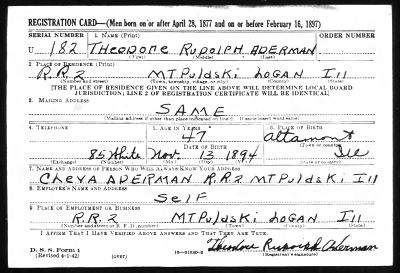 REGISTRATION CARD—(Men born on or after April 28, 1877 and on or before February 16, 1897)
SERIAL NUMBER 1. NAME (Print) ORDER NUMBER
U 182 THEODORE RUDOLPH ADERMAN
(First) (Middle) (Last)
2. PLACE OF RESIDENCE (Print)
R.R.2 MT PULASKI LOGAN Ill
(Number and street) (Town, township, village, or city) (County) (State)
[THE PLACE OF RESIDENCE GIVEN ON THE LINE ABOVE WILL DETERMINE LOCAL BOARD
JURISDICTION; LINE 2 OF REGISTRATION CERTIFICATE WILL BE IDENTICAL]
3. MAILING ADDRESS
SAME
(Mailing address if other than place indicated on line 2. If same insert word same)
4. TELEPHONE 5. AGE IN YEARS 6. PLACE OF BIRTH
47 Altamont
DATE OF BIRTH (Town or county)
85 White Nov. 13 1894 Ill
(Exchange) (Number) (Mo.) (Day) (Yr.) (State or country)
7. NAME AND ADDRESS OF PERSON WHO WILL ALWAYS KNOW YOUR ADDRESS
CHEVA ADERMAN R.R.2 MT Pulaski Ill
8. EMPLOYER'S NAME AND ADDRESS
SELF
9. PLACE OF EMPLOYMENT OR BUSINESS
R.R.2 MT PULASKI LOGAN Ill
(Number and street or R. F. D. number) (Town) (County) (State)
I AFFIRM THAT I HAVE VERIFIED ABOVE ANSWERS AND THAT THEY ARE TRUE.
Theodore Rudolph Aderman
D. S. S. Form 1
(Revised 4-1-42) (over) (Registrant's signature)